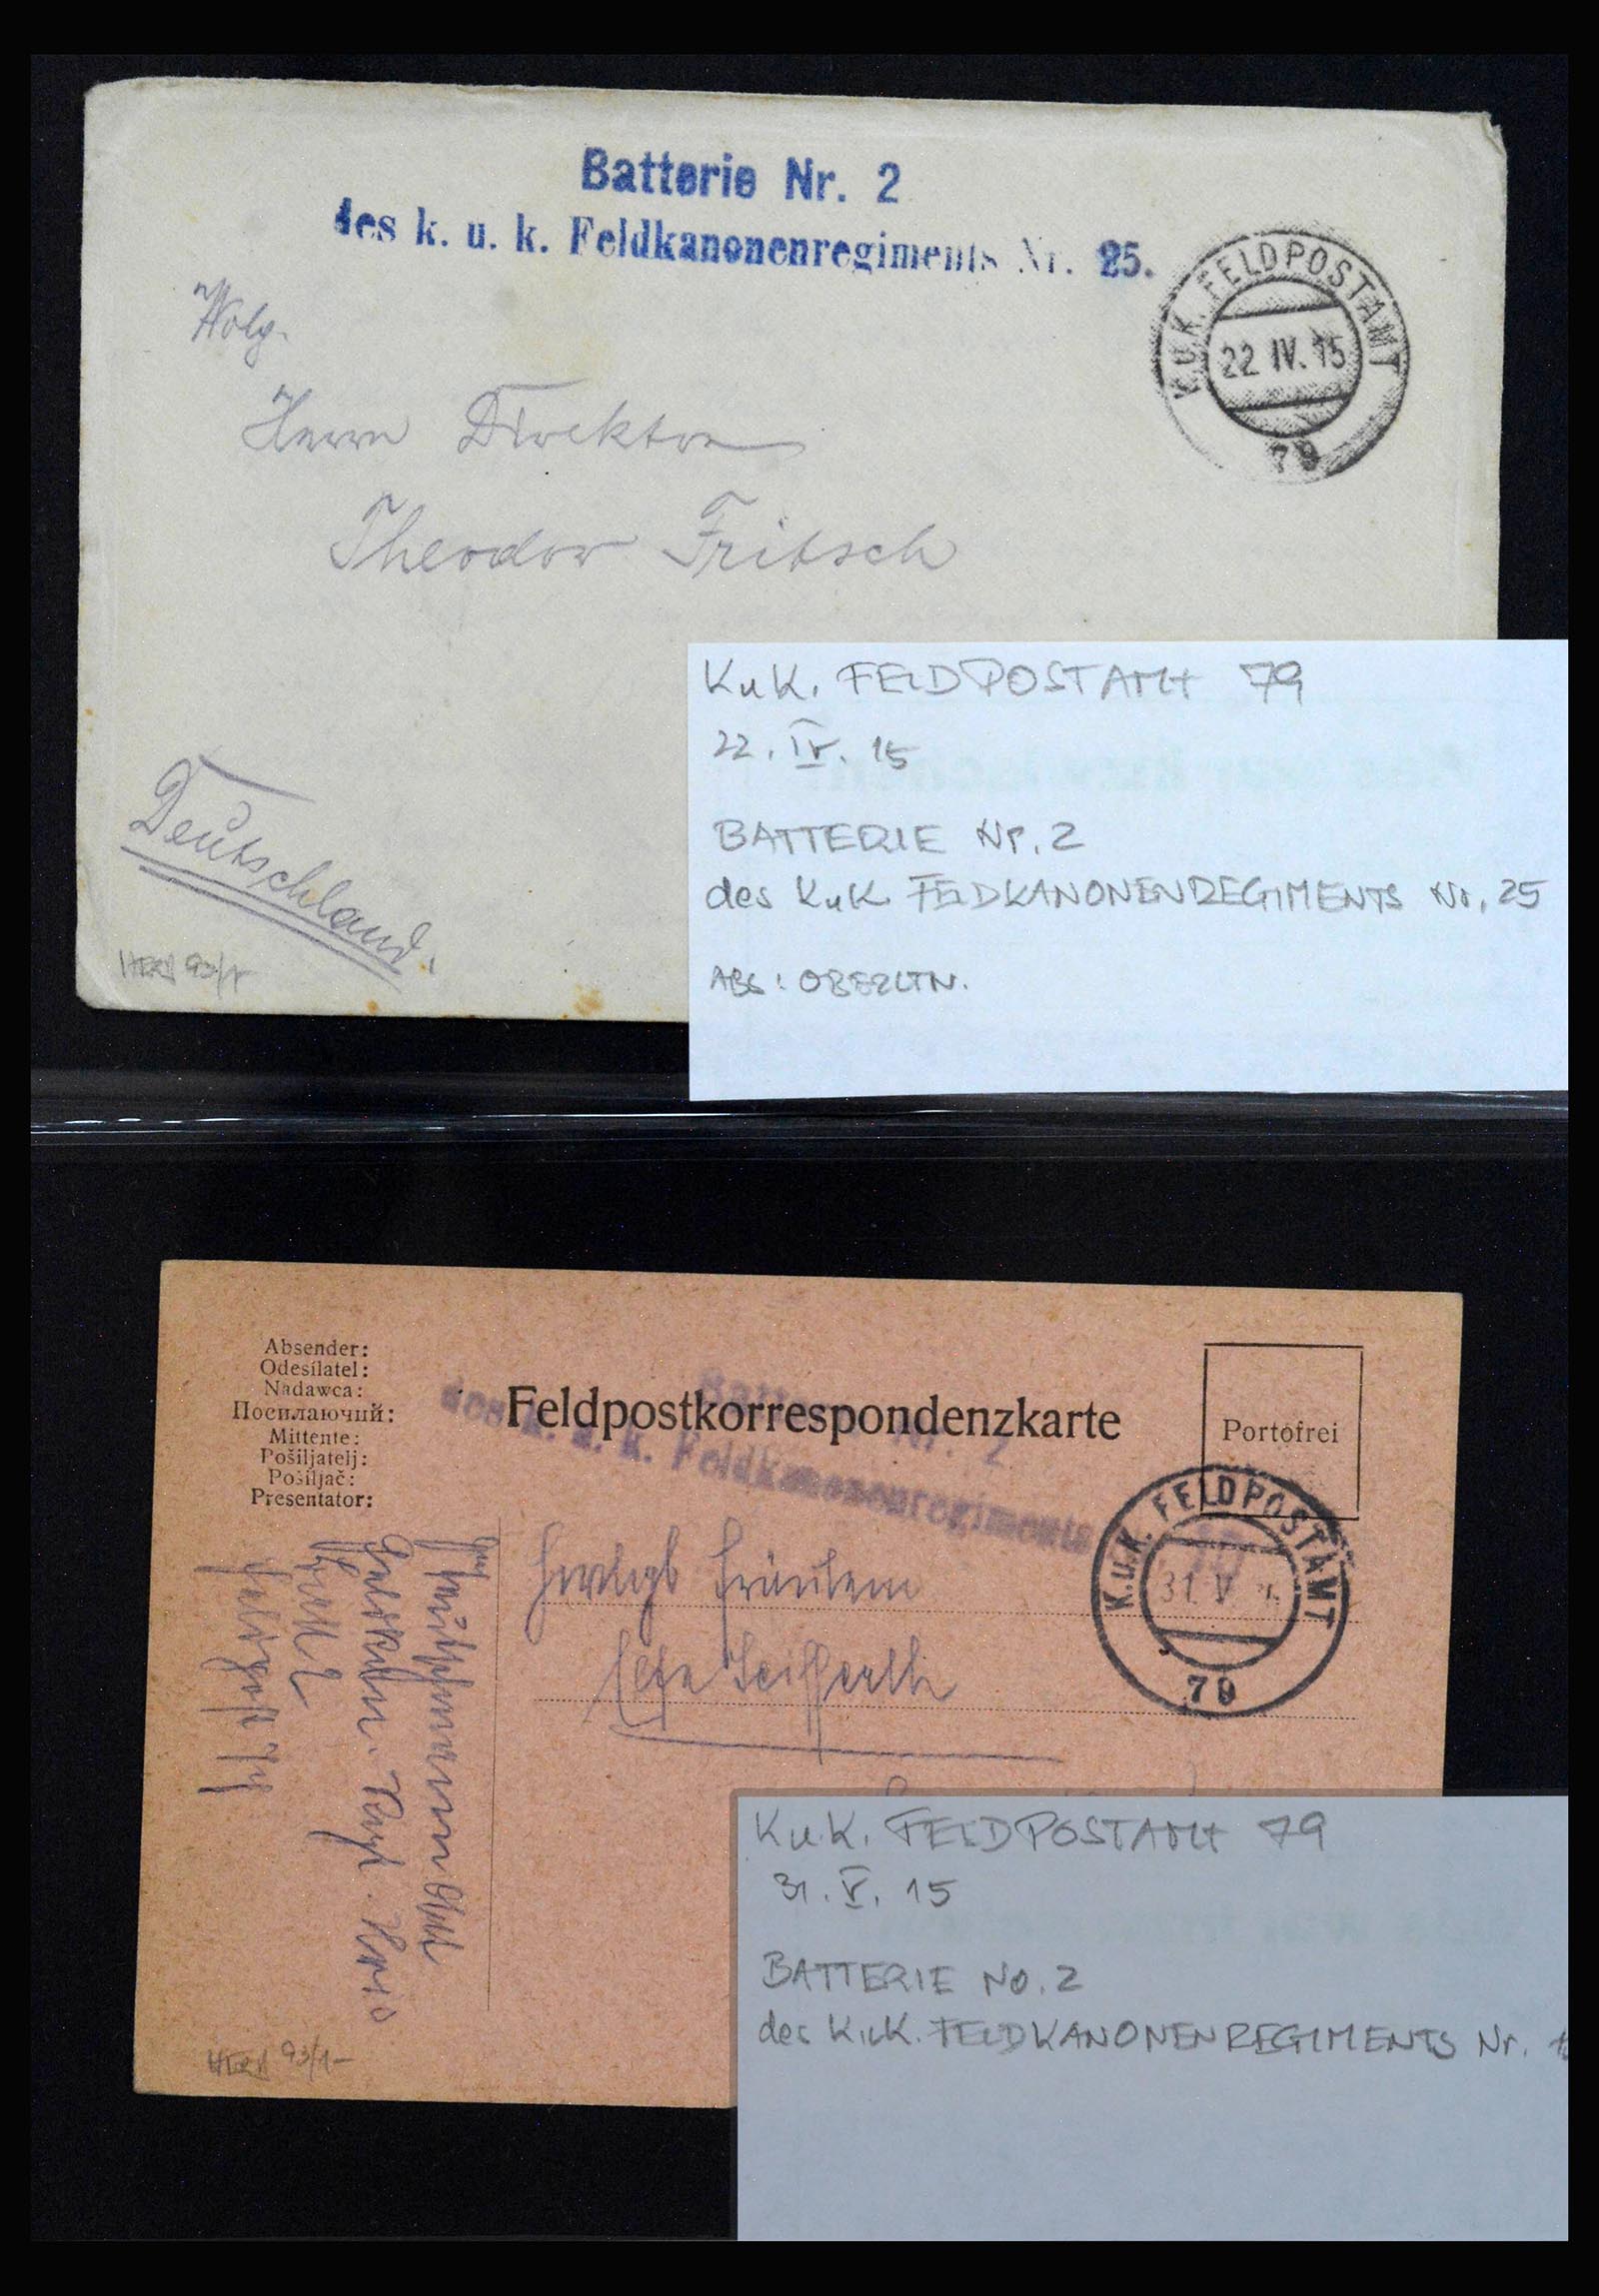 Batterie Nr. 2
des k. u. k. Feldkanonenregiments Nr. 25.
K.u.K. FELDPOSTAMT
22 IV. 15
79
Wolg.
Herrn Direktor
Theodor Fritsch
Deutschland.
KuK. FELDPOSTAMt 79
22. IV. 15
BATTERIE Nr. 2
des KuK FELDKANONENREGIMENTS Nr. 25
ABS: OBERLTN.
Absender:
Odesílatel:
Nadawca:
Посилаючий:
Mittente:
Pošiljatelj:
Pošiljač:
Presentator:
Feldpostkorrespondenzkarte
Portofrei
Batterie Nr. 2
des k. u. k. Feldkanonenregiments
K.u.K. FELDPOSTAMT
31. V
79
Fräulein
K.u.K. FELDPOSTAMt 79
31. V. 15
BATTERIE NO. 2
des K.u.K. FELDKANONENREGIMENTS Nr.